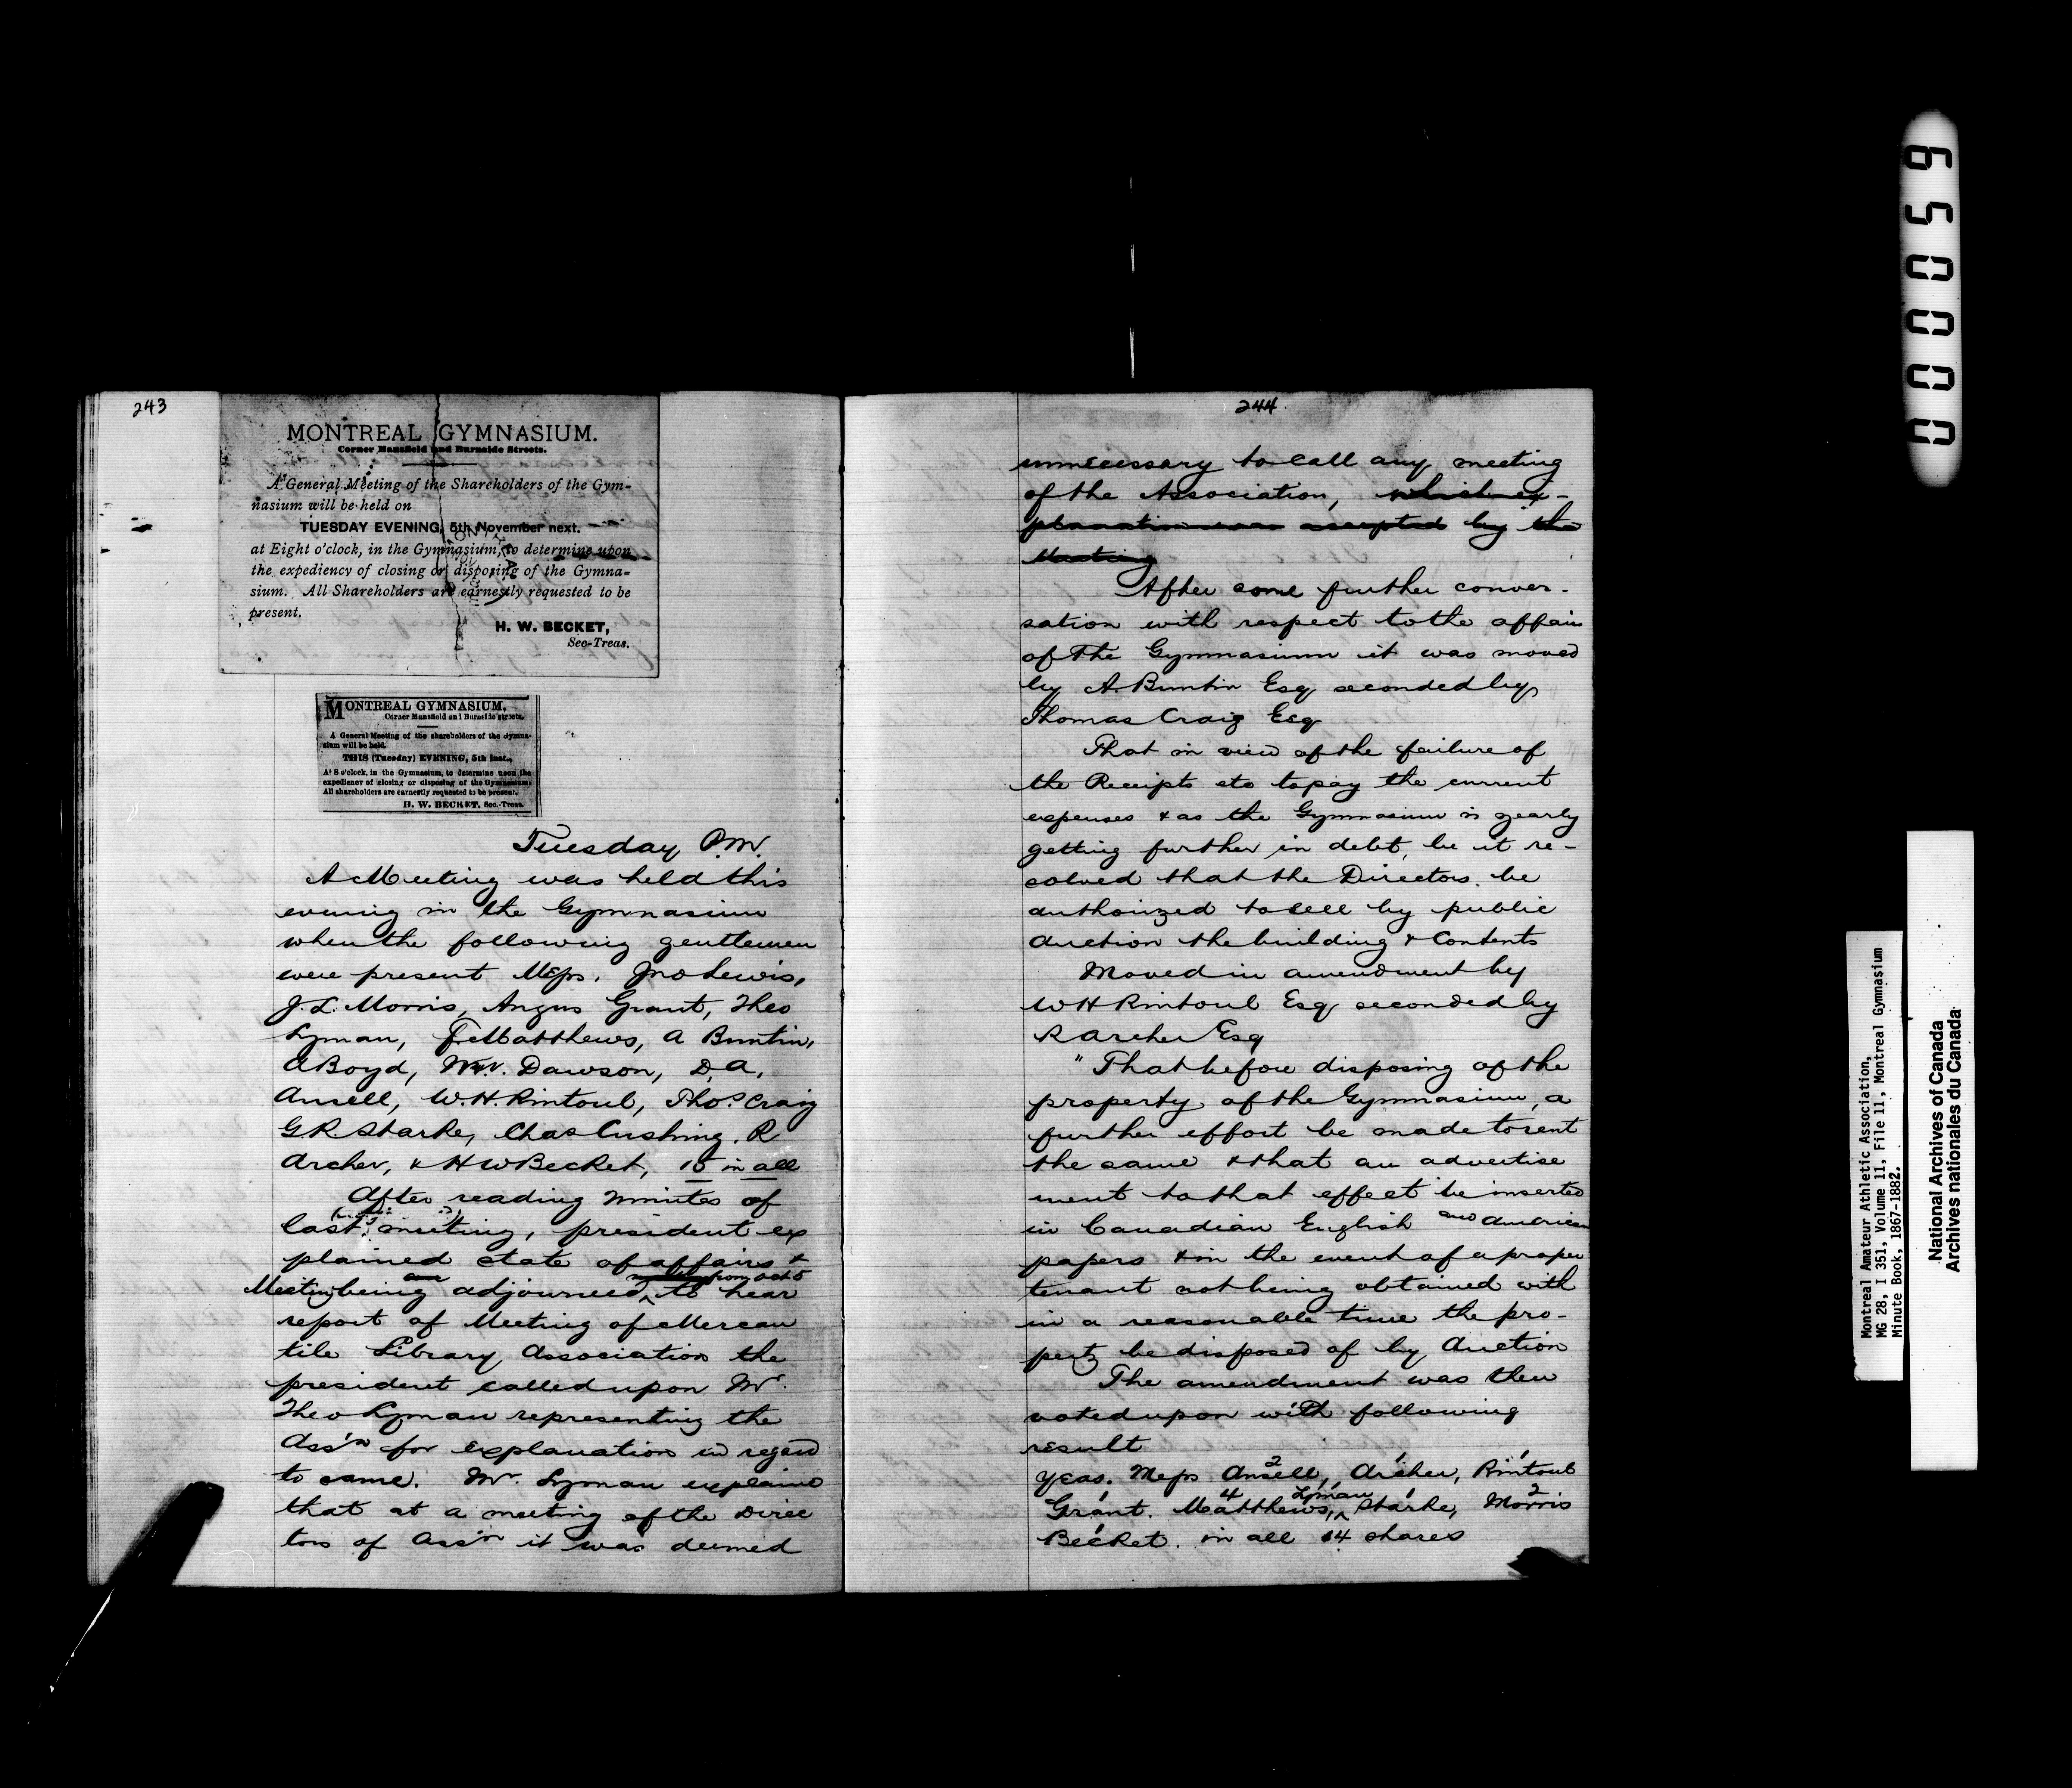 243
MONTREAL GYMNASIUM.
Corner Mansfield and Burnside Streets.
A General Meeting of the Shareholders of the Gym-
nasium will be held on
TUESDAY EVENING, 5th November next.
at Eight o'clock, in the Gymnasium, to determine upon
the expediency of closing or disposing of the Gymna-
sium. All Shareholders are earnestly requested to be
present.
H. W. BECKET,
Sec-Treas.
MONTREAL GYMNASIUM,
Corner Mansfield and Burnside streets.
A General Meeting of the shareholders of the Gymna-
sium will be held.
THIS (Tuesday) EVENING, 5th inst.,
At 8 o'clock, in the Gymnasium, to determine upon the
expediency of closing or disposing of the Gymnasium.
All shareholders are earnestly requested to be present.
H. W. BECKET, Sec.-Treas.
Tuesday P.M.
A Meeting was held this
evening in the Gymnasium
when the following gentlemen
were present Messrs. Jno Lewis,
J.L. Morris, Angus Grant, Theo
Lyman, F. Matthews, A Buntin,
A Boyd, Wm. Dawson, D.A.
Ansell, W.H. Rintoul, Thos. Craig
G R Starke, Chas Cushing. R
Archer, & H W Becket, 15 in all
After reading minutes of
last meeting, president ex
plained state of affairs &
Meeting being an adjourned from Oct 5 to hear
report of Meeting of Mercan
tile Library Association the
president called upon Mr.
Theo Lyman representing the
Ass'n for explanation in regard
to same. Mr. Lyman explained
that at a meeting of the Direc
tors of Ass'n it was deemed
244
unnecessary to call any meeting
of the Association, which ex-
planation was accepted by the
Meeting
After some further conver-
sation with respect to the affairs
of the Gymnasium it was moved
by A. Buntin Esq seconded by
Thomas Craig Esq
That in view of the failure of
the Receipts etc to pay the current
expenses & as the Gymnasium is yearly
getting further in debt, be it re-
solved that the Directors be
authorized to sell by public
Auction the building & Contents
Moved in amendment by
W H Rintoul Esq seconded by
R Archer Esq
" That before disposing of the
property of the Gymnasium, a
further effort be made to rent
the same & that an advertise
ment to that effect be inserted
in Canadian English and American
papers & in the event of a proper
tenant not being obtained with
in a reasonable time the pro-
perty be disposed of by Auction
The amendment was then
voted upon with following
result
Yeas. Messrs Ansell, 2 Archer, 1 Rintoul 1
Grant. 1 Matthews, 4 Lyman 1 Starke, 1 Morris 2
Becket. 1 in all 14 shares
0000 59
Montreal Amateur Athletic Association,
MG 28, I 351, Volume 11, File 11, Montreal Gymnasium
Minute Book, 1867-1882.
National Archives of Canada
Archives nationales du Canada